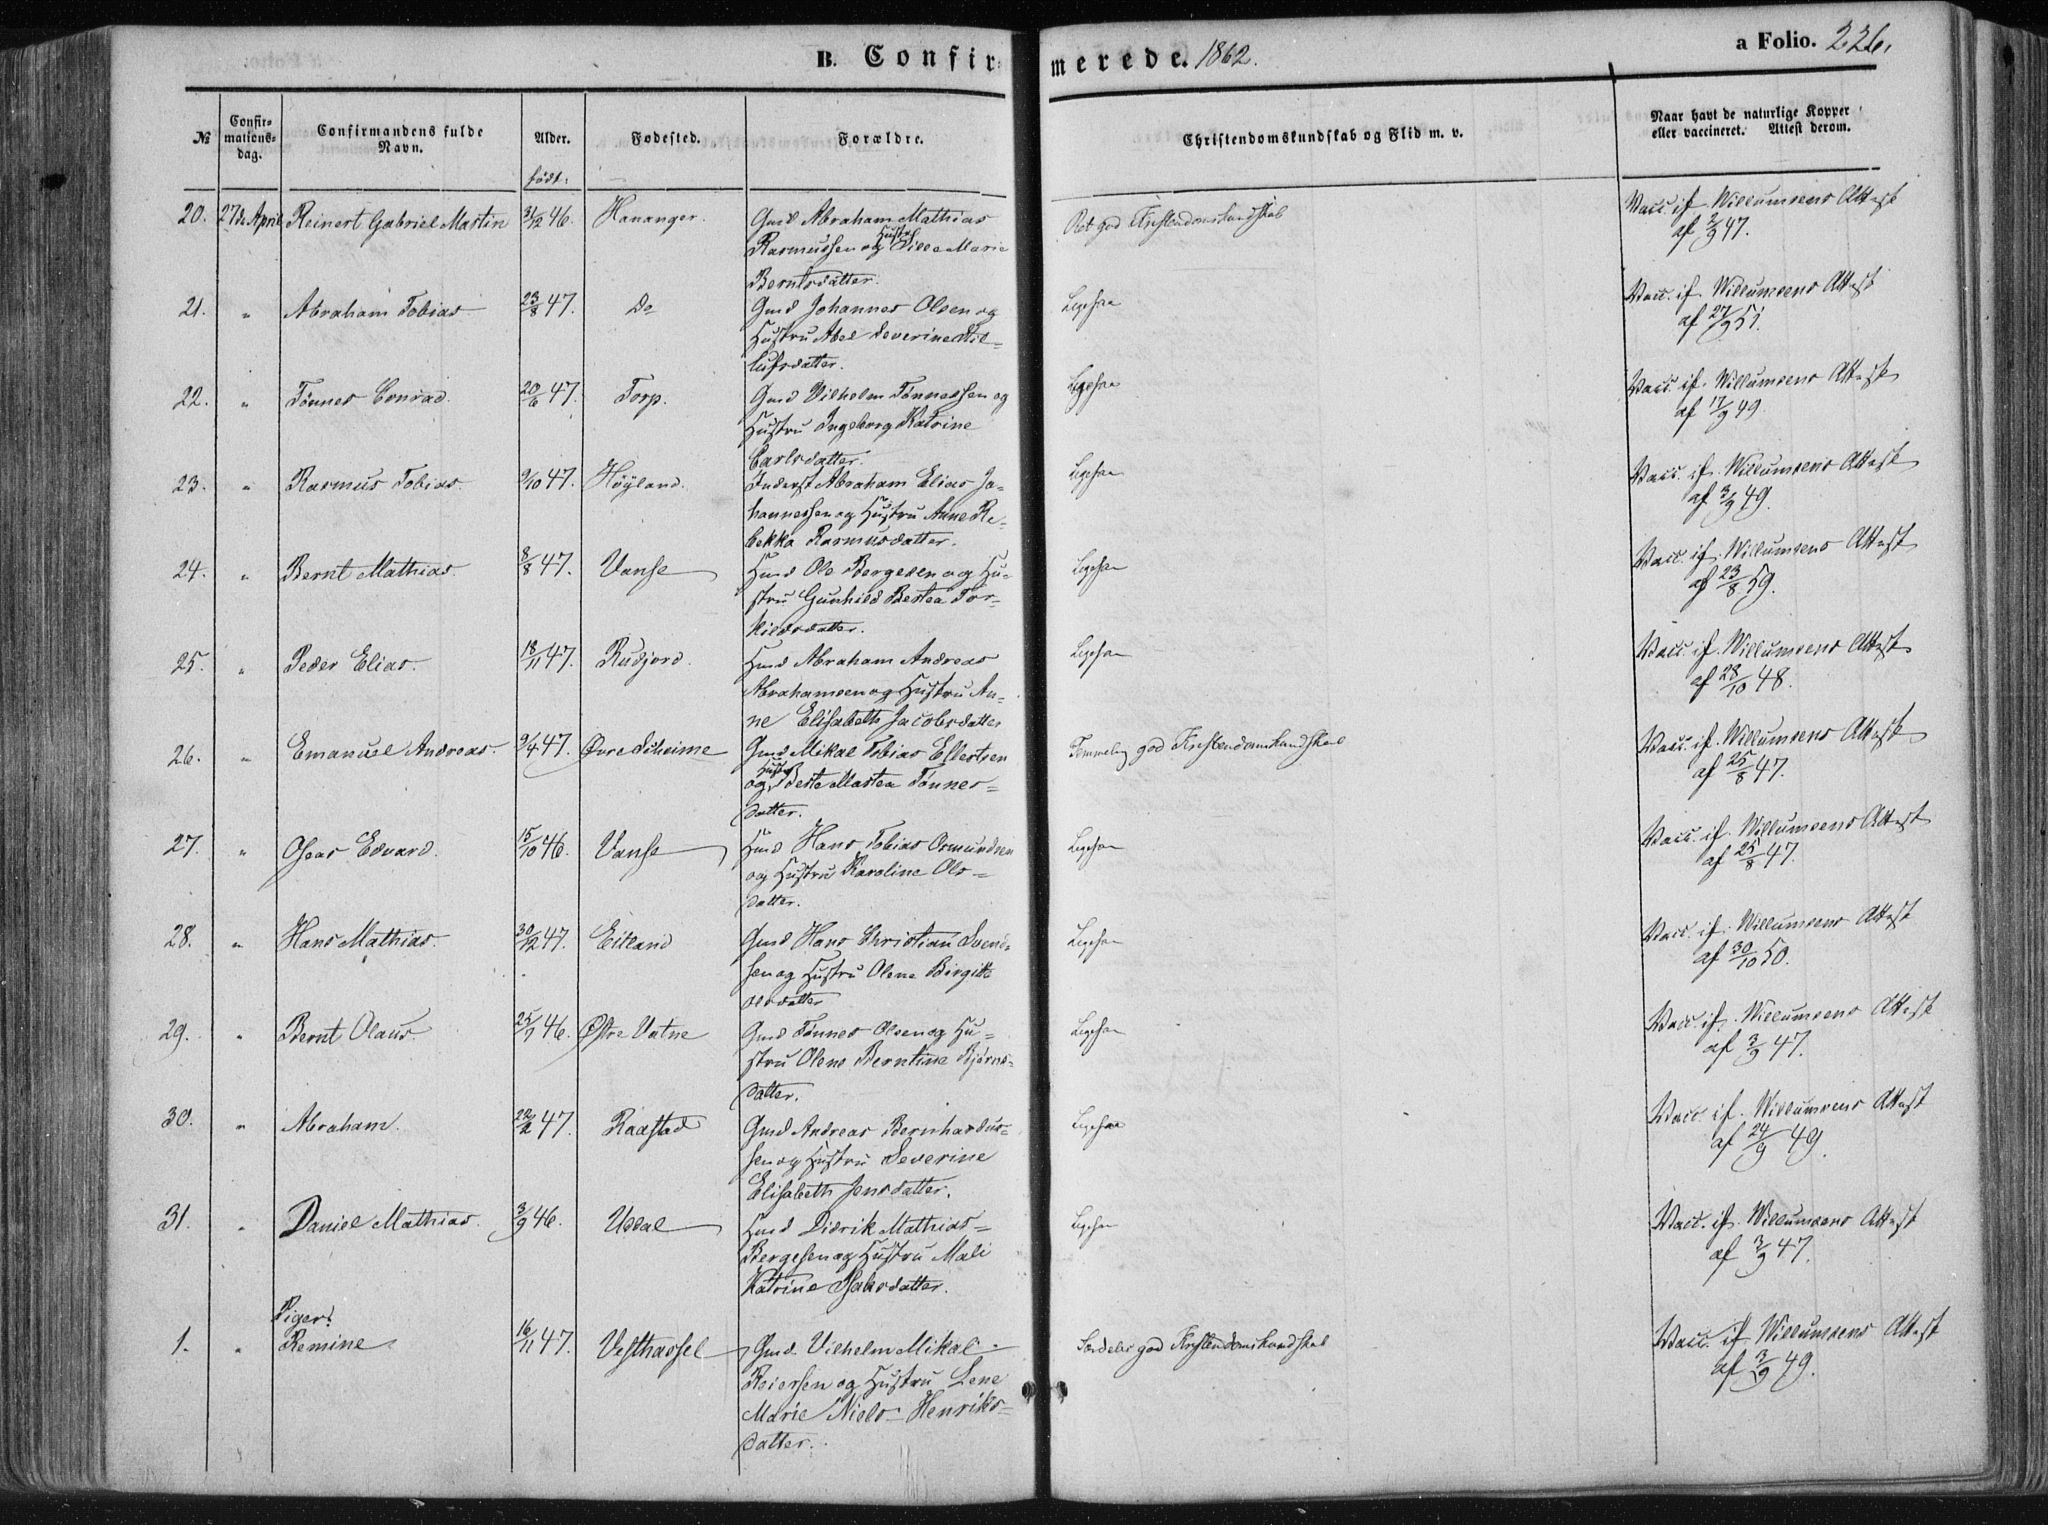 B. Confirmerede. 1862.
a Folio. 226.
№
Confirmationsdag.
Confirmandens fulde Navn.
Alder.
født:
Fødested.
Forældre.
Christendomskundskab og Flid m. v.
Naar havt de naturlige Kopper eller vaccineret. Attest derom.
20. 27de April Reinert Gabriel Martin 31/12 46. Hananger. Gmd Abraham Mathias Ret god Kristendomskundskab Vacc. if. Willumsens Attest
Rasmussen og Hustru Sille Marie af 2/9 47.
Berntsdatter.
21. " Abraham Tobias 23/8 47. Do Gmd Johannes Olsen og Ligesaa Vacc. if. Willumsens Attest
Hustru Abel Severine af 27/9 51.
lufsdatter.
22. " Tønnes Conrad. 20/6 47. Torp. Gmd Vilhelm Tønnessen og Ligesaa Vacc. if. Willumsens Attest
Hustru Ingeborg Katrine af 17/9 49.
Carlsdatter.
23. " Rasmus Tobias. 9/10 47. Høyland. Inderst Abraham Elias Jo- Ligesaa Vacc. if. Willumsens Attest
hannessen og Hustru Anne Re- af 3/9 49.
bekka Rasmusdatter.
24. " Bernt Mathias. 8/8 47. Vanse Hmd Ole Bergesen og Hu- Ligesaa Vacc. if. Willumsens Attest
stru Gunhild Bertea Tor- af 23/8 59.
kildsdatter.
25. " Peder Elias. 18/11 47. Rudjord. Hmd Abraham Andreas Ligesaa Vacc. if. Willumsens Attest
Abrahamsen og Hustru An- af 28/10 48.
ne Elisabeth Jacobsdatter
26. " Emanuel Andreas. 9/4 47. Øvre Gmd Mikal Tobias Ellertsen Temmelig god Kristendomskundskab Vacc. if. Willumsens Attest
og Hustru Berte Martea Tønnes- af 25/8 47.
datter.
27. " Oseas Edvard. 15/10 46. Vanse Hmd Hans Tobias Osmundsen Ligesaa Vacc. if. Willumsens Attest
og Hustru Karoline Ols- af 25/8 47.
datter.
28. " Hans Mathias. 30/12 47. Eitland Gmd Hans Christian Svend- Ligesaa Vacc. if. Willumsens Attest
sen og Hustru Olene Birgitte af 30/10 50.
Olsdatter
29. " Bernt Olaus. 25/7 46. Østre Vatne Gmd Tønnes Olsen og Hu- Ligesaa Vacc. if. Willumsens Attest
stru Olene Berntine Bjørns- af 3/9 47.
datter.
30. " Abraham. 22/2 47. Raastad Gmd Andreas Bernhardus- Ligesaa Vacc. if. Willumsens Attest
sen og Hustru Severine af 24/9 49.
Elisabeth Jensdatter.
31. " Daniel Mathias. 3/9 46. Ullal Hmd Didrik Mathias Ligesaa Vacc. if. Willumsens Attest
Bergesen og Hustru Mali af 3/9 47.
Katrine Isaksdatter.
Piger:
1. " Remine 16/11 47. Vesthassel Gmd. Vilhelm Mikal Særdeles god Kristendomskundskab Vacc. if Willumsens Attest
Reiersen og Hustru Lene af 3/9 49.
Marie Niels Henriks-
datter.